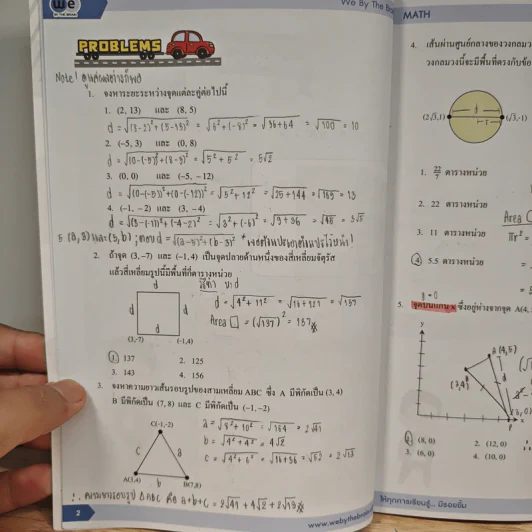 We
BY THE BRAIN
We By The Brain
PROBLEMS
Note!
1. จงหาระยะระหว่างจุดแต่ละคู่ต่อไปนี้
1. (2, 13) และ (8, 5)
d = √(8-2)² + (5-13)² = √6² + (-8)² = √36+64 = √100 = 10
2. (-5, 3) และ (0, 8)
d = √(0-(-5))² + (8-3)² = √5² + 5² = 5√2
3. (0, 0) และ (-5, -12)
d = √(0-(-5))² + (0-(-12))² = √5² + 12² = √25+144 = √169 = 13
4. (-1, -2) และ (3, -4)
5 (a, 3) และ (5, b) ; ตอบ d = √(a-5)² + (b-3)²
2. ถ้าจุด (3, -7) และ (-1, 4) เป็นจุดปลายด้านหนึ่งของสี่เหลี่ยมจัตุรัส
แล้วสี่เหลี่ยมรูปนี้มีพื้นที่กี่ตารางหน่วย
วิธีทำ หา d
d
d d
d
d = √4² + 11² = √16+121 = √137
Area □ = (√137)² = 137
(3,-7) (-1,4)
1. 137 2. 125
3. 143 4. 156
3. จงหาความยาวเส้นรอบรูปของสามเหลี่ยม ABC ซึ่ง A มีพิกัดเป็น (3, 4)
B มีพิกัดเป็น (7, 8) และ C มีพิกัดเป็น (-1, -2)
C(-1,-2)
c a
b
A(3,4) B(7,8)
a = √8² + 10² = √164 = 2√41
b = √4² + 4² = 4√2
c = √4² + 6² = √16+36 = √52 = 2√13
∴ ความยาวรอบรูป △ABC คือ a+b+c = 2√41 + 4√2 + 2√13
2
MATH
4. เส้นผ่านศูนย์กลางของวงกลมว
วงกลมวงนี้จะมีพื้นที่ตรงกับข้อ
d
r
1. 22/7 ตารางหน่วย
2. 22 ตารางหน่วย
3. 11 ตารางหน่วย
4 5.5 ตารางหน่วย
Area
πr² =
y = 0
5. จุดบนแกน x ซึ่งอยู่ห่างจากจุด A(4,
y
A (4,5)
1 (8, 0) 2. (12, 0)
3. (6, 0) 4. (10, 0)
ให้ทุกการเรียนรู้... มีรอยยิ้ม